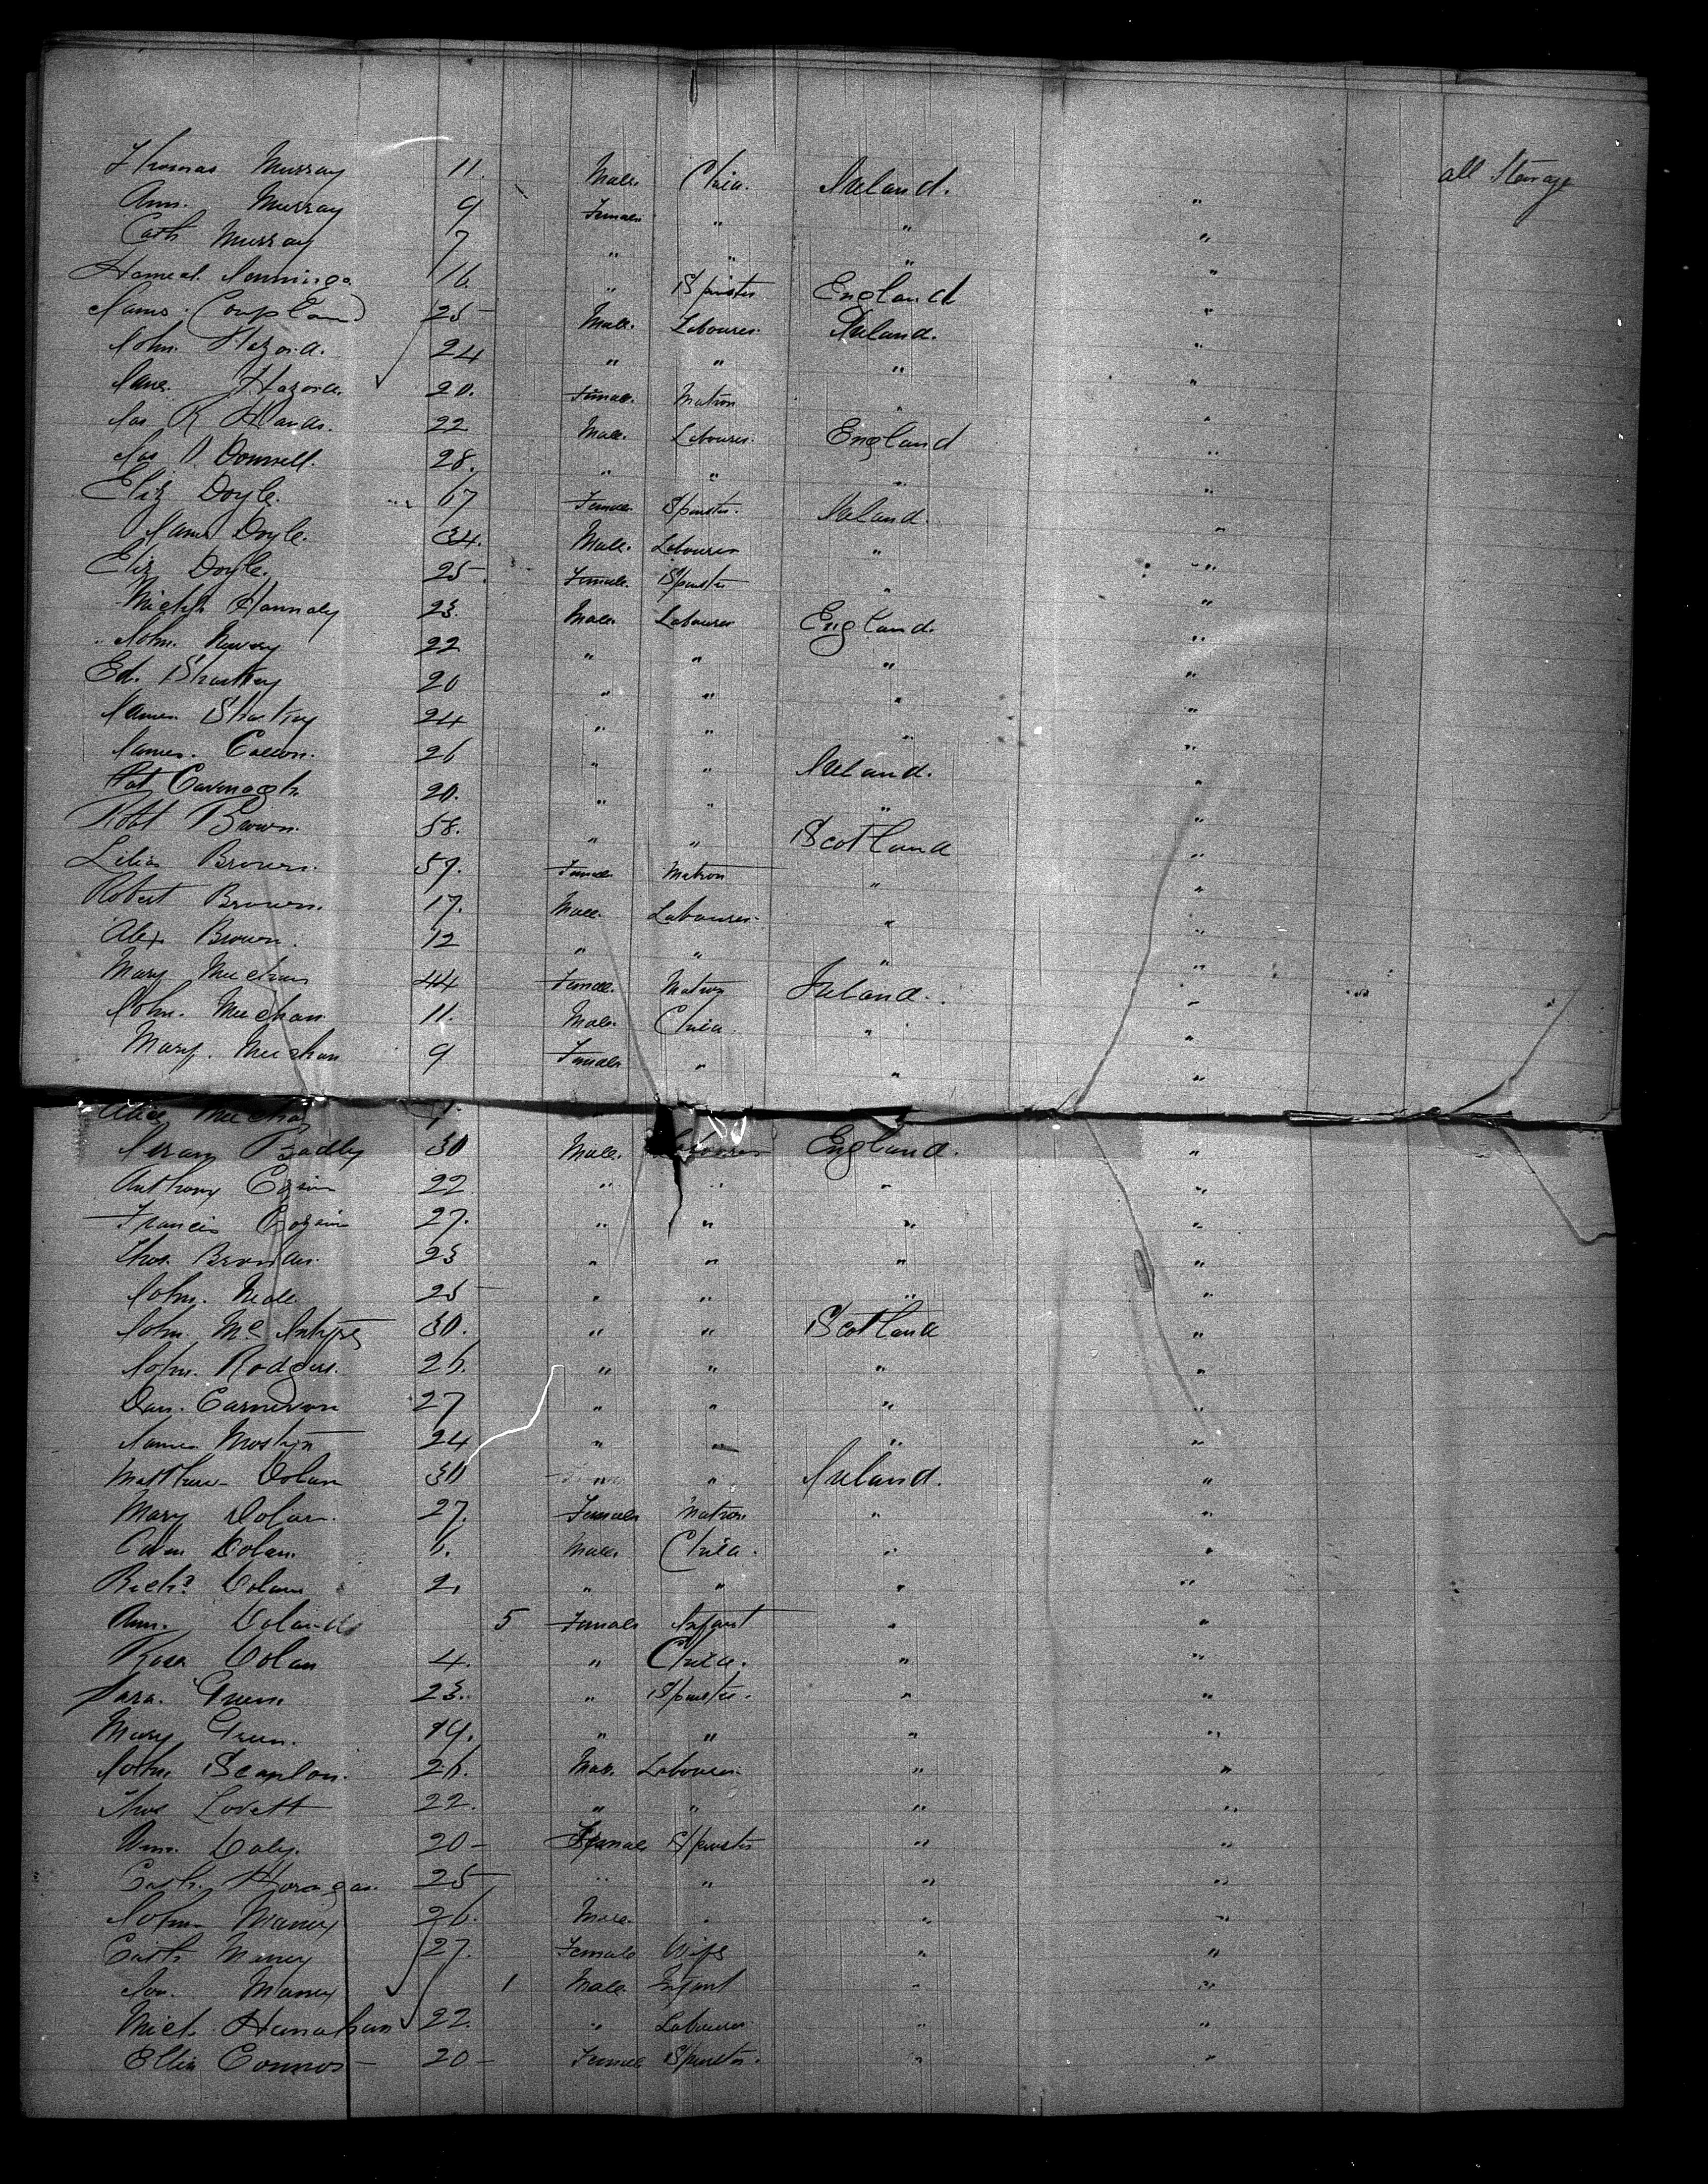 Thomas Murray 11. Male. Child. Ireland. " all Steerage
Ann. Murray 9 Female " " "
Cath Murray 7 " " " "
Jennings 16. " Spinster England "
James Coupland 25 Male. Labourer Ireland. "
John. 24 " " " "
Jane. 20. Female. Matron " "
Jas R Hands. 22 Male. Labourer England "
Jas O. Donnell. 28. " " " "
Eliz Doyle. 67 Female Spinster. Ireland. "
James Doyle. 34. Male. Labourer " "
Eliz Doyle. 25 Female. Spinster " "
Michl 23. Male. Labourer England. "
John. 22 " " " "
Ed. Sharkey 20 " " " "
James Sharkey 24 " " " "
James. 26 " " Ireland. "
Pat Cavenagh. 20. " " " "
Robt Brown. 58. " " Scotland "
Lilias Brown. 57. Female Matron " "
Robert Brown. 17. Male. Labourer " "
Alex Brown. 12 " " " "
Mary Meehan 44 Female. Matron Ireland. "
John. Meehan 11. Male. Child. " "
Mary. Meehan 9 Female " " "
Alice Meehan
30 Male. Labourer England. "
Anthony 22 " " " "
Francis 27. " " " "
Thos. 23 " " " "
John. Neale 25 " " " "
John. McIntyre 30. " " Scotland "
John. Rodgers. 26. " " " "
Dan. 27 " " " "
James Mostyn 24 " " " "
Matthew Dolan 30 " " Ireland. "
Mary Dolan. 27. Female Matron " "
Owen Dolan. 6. Male. Child. " "
Richd Dolan 2. " " " "
Ann. Dolan 5 Female Infant " "
Rose Dolan 4. " Child. " "
Sara. Green 23. " Spinster. " "
Mary Green. 19. " " " "
John Scanlon. 26. Male. Labourer " "
Thos Lovett 22. " " " "
Wm. Daly. 20 Female Spinster " "
Cath. Horogan. 25 " " " "
John Maney 26. Male. " " "
Cath Maney 27. Female Wife " "
Maney 1 Male Infant " "
Mich. Hanahan 22. " Labourer " "
Ellen Connor 20 Female Spinster. " "